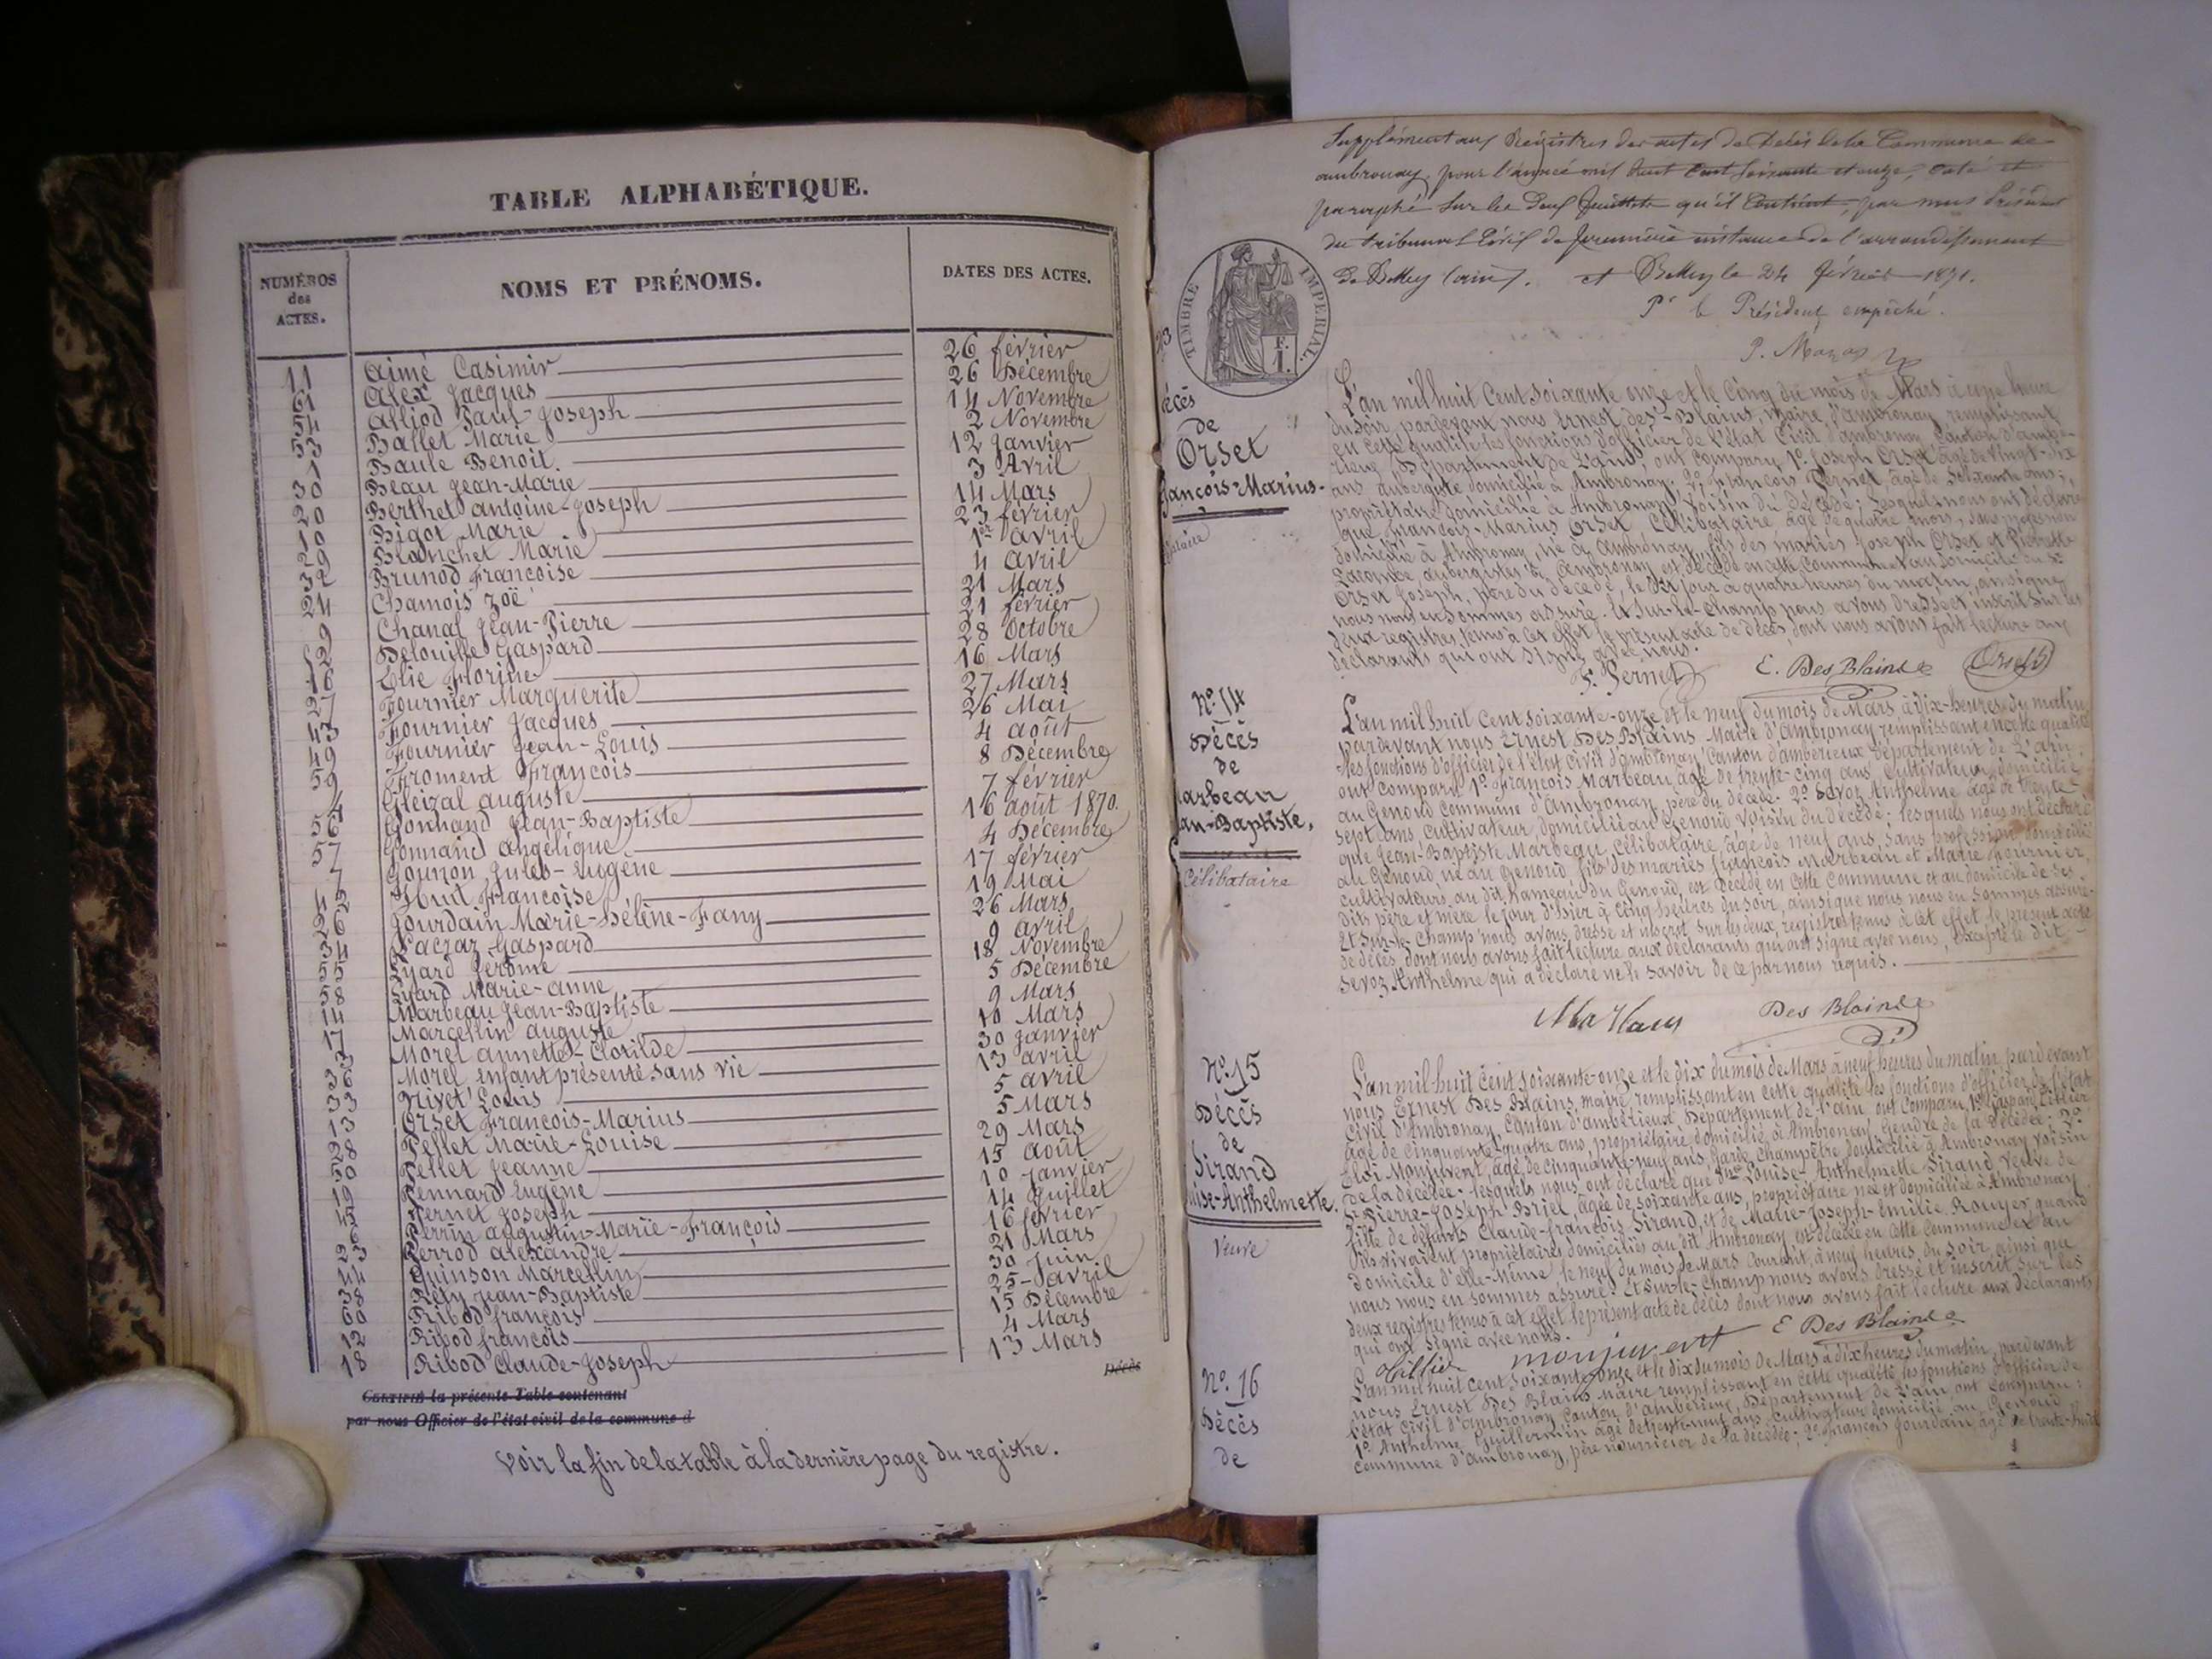 TABLE ALPHABÉTIQUE.
NUMÉROS des ACTES.
NOMS ET PRÉNOMS.
DATES DES ACTES.
11 Aimé Casimir 26 février
61 Alex Jacques 26 Décembre
54 Alliod Paul-Joseph 14 Novembre
53 Ballet Marie 2 Novembre
Baule Benoit. 12 Janvier
30 Beau Jean-Marie 3 Avril
20 Berthet Antoine-Joseph 14 Mars
10 Bigot Marie 23 février
29 Blanchet Marie 1er avril
32 Brunod Françoise 4 avril
24 Chamois Zoë 21 Mars
9 Chanal Jean-Pierre 21 février
Gaspard 28 Octobre
Elie Florine 16 Mars
27 Fournier Marguerite 27 Mars
43 Fournier Jacques 26 Mai
49 Fournier Jean-Louis 4 août
59 Froment François 8 Décembre
4 Gleizal Auguste 7 février
56 Gonnand Jean-Baptiste 16 août 1870.
57 Gonnand Angélique 4 Décembre
7 Gounon Jules-Eugène 17 février
42 Huit Françoise 19 Mai
26 Jourdain Marie-Hélène-Fany 26 Mars
34 Gaspard 9 avril
55 Lyard Jérôme 18 Novembre
58 Lyard Marie-Anne 5 Décembre
14 Marbeau Jean-Baptiste 9 Mars
17 Marcellin Auguste 10 Mars
3 Morel Annette-Clotilde 30 Janvier
36 Morel enfant présenté sans vie 13 avril
33 Nivet Louis 5 avril
13 Orset François-Marius 5 Mars
28 Pellet Marie-Louise 29 Mars
50 Pellet Jeanne 15 Août
Pennard Eugène 10 Janvier
Pernet Joseph 14 Juillet
6 Perrin Augustin-Marie-François 16 février
23 Perrod Alexandre 21 Mars
44 Quinson Marcellin 30 Juin
38 Réty Jean-Baptiste 25 Avril
60 Ribod François 15 Décembre
12 Ribod François 4 Mars
18 Ribod Claude-Joseph 13 Mars
Décès
CERTIFIÉ la présente Table contenant
par nous Officier de l'état civil de la commune d
Voir la fin de la table à la dernière page du registre.
Supplément aux Registres des actes de Décès de la Commune de
ambronay, pour l'année mil huit cent soixante et onze, coté et
paraphé sur les deux feuillets qu'il contient, par nous Président
du tribunal Civil de première instance de l'arrondissement
de Belley (ain). et Belley le 24 février 1871.
Pr le Président empêché.
TIMBRE IMPERIAL.
F. 1.
décès
de
Orset
François-Marius
L'an mil huit cent soixante onze et le cinq du mois de Mars à une heure
du soir, pardevant nous Ernest des-Blains, Maire d'ambronay remplissant
en cette qualité les fonctions d'officier de l'état Civil d'ambronay, Canton d'ambé-
rieux, Département de l'ain, ont comparu 1º Joseph Orset âgé de vingt-six
ans aubergiste domicilié à Ambronay; 2º François Pernet âgé de soixante ans;
propriétaire domicilié à Ambronay, voisin du décédé; lesquels nous ont déclaré
que François-Marius Orset célibataire âgé de quatre mois, sans profession
domicilié à Ambronay, né à Ambronay, fils des mariés Joseph Orset et Pierrette
aubergistes à Ambronay est décédé en cette Commune et au domicile du Sr
Orset Joseph, père du décédé, le dit jour à quatre heures du matin, ainsi que
nous nous en sommes assuré. Et sur-le-champ nous avons dressé et inscrit sur les
deux registres tenus à cet effet le présent acte de décès dont nous avons fait lecture aux
déclarants qui ont signé avec nous.
F. Pernet E. Des Blains Orset
Nº. 14
Décès
de
Marbeau
Jean-Baptiste,
Célibataire
L'an mil huit cent soixante-onze et le neuf du mois de Mars à dix-heures du matin
pardevant nous Ernest Des Blains Maire d'Ambronay remplissant en cette qualité
les fonctions d'officier de l'état Civil d'ambronay, Canton d'ambérieux Département de L'ain,
ont comparu 1º. François Marbeau âgé de trente-cinq ans, Cultivateur, domicilié
au Genoud Commune d'Ambronay, père du décédé. 2º. Savoz Anthelme âgé de trente-
sept ans cultivateur, domicilié au Genoud voisin du décédé; lesquels nous ont déclaré
que Jean-Baptiste Marbeau célibataire, âgé de neuf ans, sans profession domicilié
au Genoud, né au Genoud, fils des mariés François Marbeau et Marie Fournier,
cultivateurs au dit hameau du Genoud, est décédé en cette Commune et au domicile de ses
dits père et mère le jour d'hier à cinq heures du soir, ainsi que nous nous en sommes assuré.
Et sur-le-champ nous avons dressé et inscrit sur les deux registres tenus à cet effet, le présent acte
de décès, dont nous avons fait lecture aux déclarants qui ont signé avec nous, excepté le dit
Savoz Anthelme qui a déclaré ne le savoir de ce par nous requis.
Des Blains
Nº. 15
Décès
de
Sirand
Louise-Anthelmette.
Veuve
L'an mil-huit cent soixante-onze et le dix du mois de Mars à neuf heures du matin pardevant
nous Ernest Des Blains, maire remplissant en cette qualité les fonctions d'officier de l'état
Civil d'Ambronay, Canton d'ambérieux, Département de l'ain, ont comparu 1º. Gaspard
âgé de cinquante-quatre ans, propriétaire, domicilié à Ambronay, Gendre de la décédée; 2º.
Eloi Monjuvent, âgé de cinquante-neuf ans, Garde champêtre domicilié à Ambronay voisin
de la décédée; lesquels nous ont déclaré que Dme. Louise-Anthelmette Sirand, Veuve de
Sr Pierre-Joseph Briel, âgée de soixante ans, propriétaire née et domiciliée à Ambronay
fille de défunts Claude-François Sirand, et de Marie-Joseph-Emilie Rouyer quand
ils vivaient propriétaires domiciliés au dit Ambronay est décédée en cette Commune et au
domicile d'elle-même, le neuf du mois de Mars courant, à neuf heures du soir, ainsi que
nous nous en sommes assuré. Et sur-le-champ nous avons dressé et inscrit sur les
deux registres tenus à cet effet le présent acte de décès dont nous avons fait lecture aux déclarants
qui ont signé avec nous.
monjuvent E Des Blains
Nº. 16
Décès
de
L'an mil huit cent soixante onze et le dix du mois de Mars à dix heures du matin, pardevant
nous Ernest Des Blains maire remplissant en cette qualité, les fonctions d'officier de
l'état Civil d'ambronay, Canton d'ambérieux, Département de L'ain ont comparu:
1º. Anthelme Guillermin âgé de trente-neuf ans, cultivateur domicilié au Genoud
commune d'ambronay, père nourricier de la décédée; 2º. François Jourdain, âgé de trente-huit